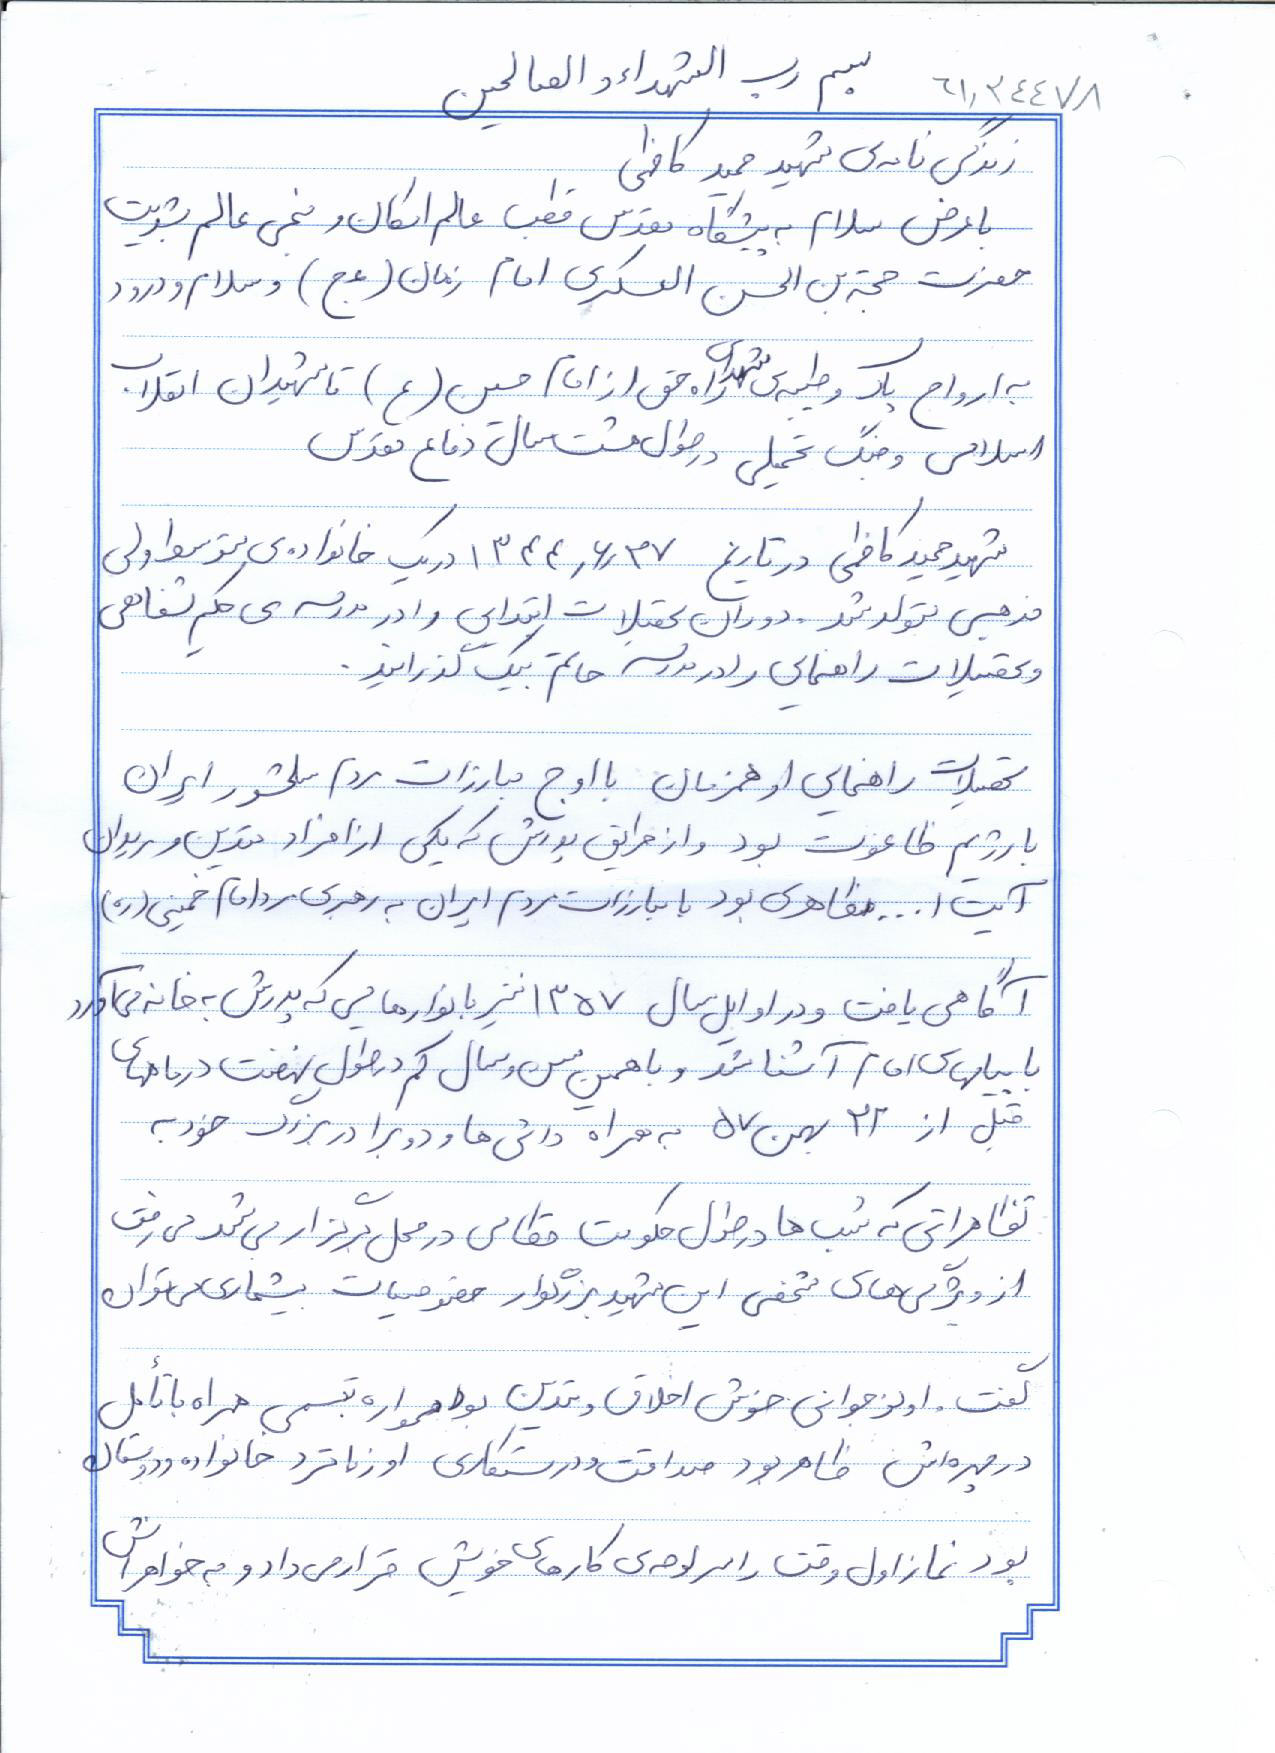 ۶۱٫۳۴۴۷۸
بسم رب الشهداء و الصالحین
زندگی نامه‌ی شهید حمید کاظمی
با عرض سلام به پیشگاه مقدس قطب عالم امکان و منجی عالم بشریت
حضرت حجة بن الحسن العسکری امام زمان (عج) و سلام و درود
به ارواح پاک و طیبه‌ی شهدای راه حق از امام حسین (ع) تا شهیدان انقلاب
اسلامی و جنگ تحمیلی در طول هشت سال دفاع مقدس
شهید حمید کاظمی در تاریخ ۱۳۴۴٫۶٫۳۷ در یک خانواده‌ی متوسط ولی
مذهبی متولد شد. دوران تحصیلات ابتدایی را در مدرسه‌ی حکیم شفاهی
و تحصیلات راهنمایی را در مدرسه حاتم بیک گذرانید.
تحصیلات راهنمایی او همزمان با اوج مبارزات مردم سلحشور ایران
با رژیم طاغوت بود و از طریق پدرش که یکی از افراد متدین و مریدان
آیت ا... مظاهری بود با مبارزات مردم ایران به رهبری مرد امام خمینی (ره)
آگاهی یافت و در اوایل سال ۱۳۵۷ نیز با نوارهایی که پدرش به خانه می‌آورد
با پیامهای امام آشنا شد و با همین سن و سال کم در طول نهضت در ماههای
قبل از ۲۲ بهمن ۵۷ به همراه دائی ها و دو برادر بزرگ خود به
تظاهراتی که شب ها در طول حکومت نظامی در محل برگزار می شد می رفت
از ویژگی‌های شخصی این شهید بزرگوار خصوصیات بیشماری می‌توان
گفت. او نوجوانی خوش اخلاق و متدین بود همواره تبسمی همراه با تأمل
در چهره‌اش ظاهر بود صداقت و درستکاری او زبانزد خانواده و دوستان
بود نماز اول وقت را سر لوحه‌ی کارهای خویش قرار می داد و به خواهرانش